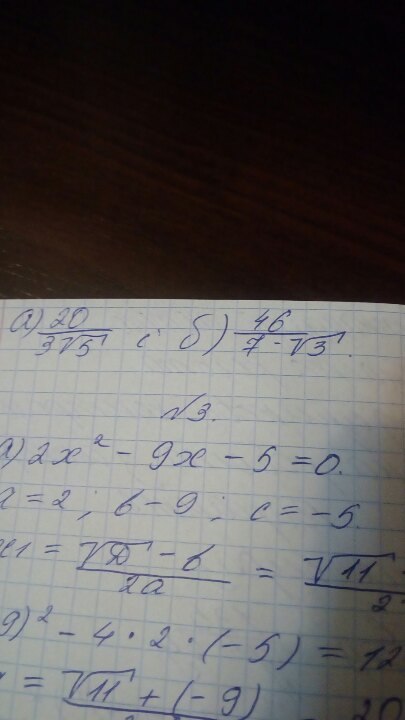 а) 20/3√5 ; б) 46/7-√3.
№3.
а) 2x² - 9x - 5 = 0.
a = 2; в - 9; c = -5
x₁ = √Д - в/2a = √11
9)² - 4 · 2 · (-5) = 12
= √11 + (-9)